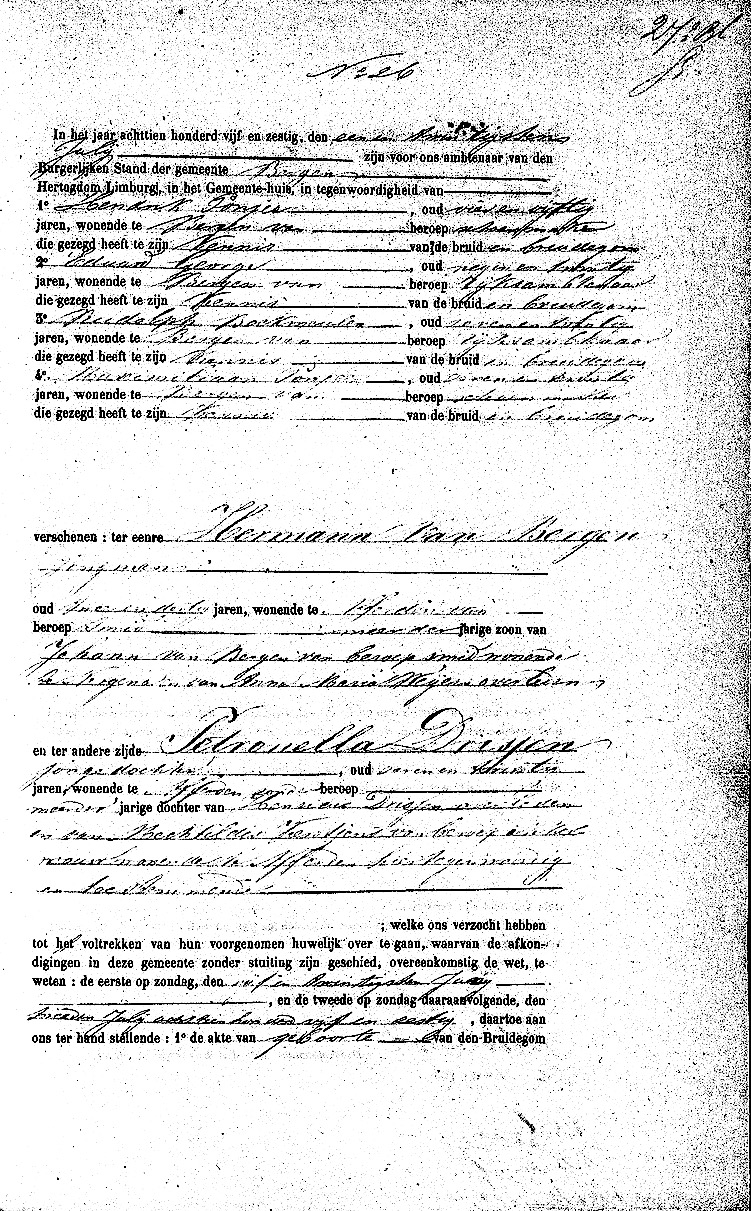 No 26
In het jaar achttien honderd vijf en zestig, den een en twintigsten
July zijn voor ons ambtenaar van den
Burgerlijken Stand der gemeente Bergen
Hertogdom Limburg, in het Gemeente-huis, in tegenwoordigheid van
1º Hendrik , oud vier en vijftig
jaren, wonende te Bergen van beroep
die gezegd heeft te zijn Kennis van de bruid en bruidegom
2º Eduard George , oud negen en twintig
jaren, wonende te Bergen van beroep rijksambtenaar
die gezegd heeft te zijn Kennis van de bruid en bruidegom
3º Rudolph , oud zeven en twintig
jaren, wonende te Bergen van beroep rijksambtenaar
die gezegd heeft te zijn Kennis van de bruid en bruidegom
4º Maximiliaan , oud zeven en twintig
jaren, wonende te Bergen van beroep
die gezegd heeft te zijn Kennis van de bruid en bruidegom
verschenen : ter eenre Hermann van Bergen
jongman
oud twee en dertig jaren, wonende te
beroep Smid meerderjarige zoon van
Johann van Bergen van beroep smid wonende
te en van Anna Maria Meijers overleden
en ter andere zijde Petronella Driessen
jonge dochter , oud zeven en twintig
jaren, wonende te Afferden beroep
meerderjarige dochter van Henricus Driessen overleden
en van Mechtildis van beroep
wonende te Afferden hier tegenwoordig
en toestemmende
; welke ons verzocht hebben
tot het voltrekken van hun voorgenomen huwelijk over te gaan, waarvan de afkon-
digingen in deze gemeente zonder stuiting zijn geschied, overeenkomstig de wet, te
weten : de eerste op zondag, den vijf en twintigsten Juny
, en de tweede op zondag daaraanvolgende, den
tweeden July achttien honderd vijf en zestig , daartoe aan
ons ter hand stellende : 1º de akte van geboorte van den Bruidegom